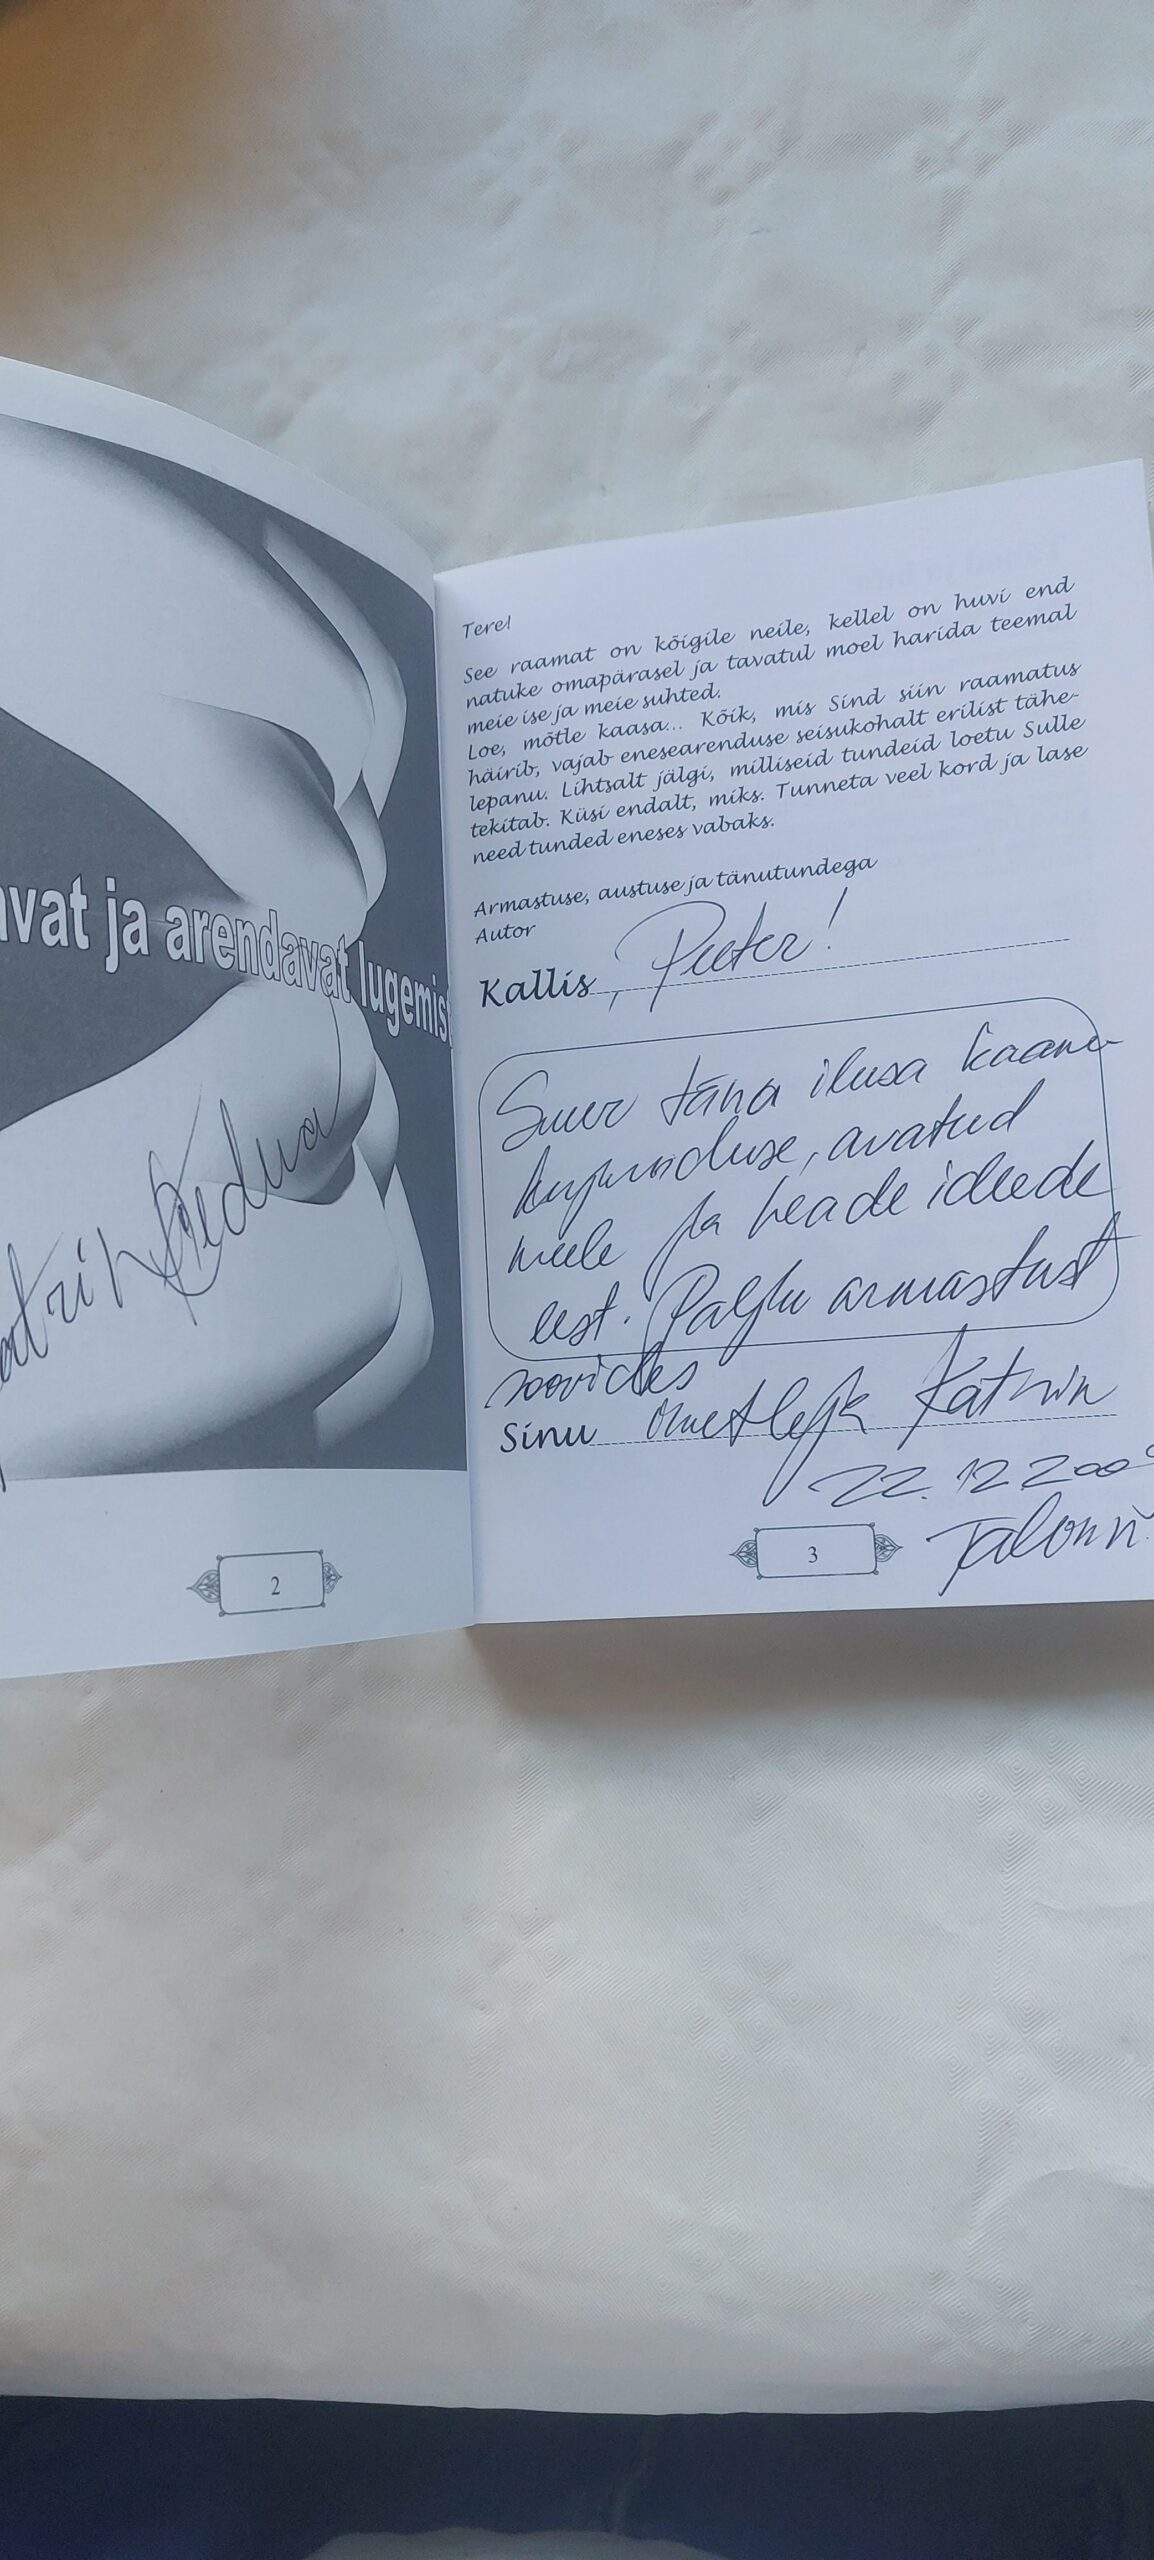 vat ja arendavat lugemist
Tere!
See raamat on kõigile neile, kellel on huvi end
natuke omapärasel ja tavatul moel harida teemal
meie ise ja meie suhted.
Loe, mõtle kaasa... Kõik, mis Sind siin raamatus
häirib, vajab enesearenduse seisukohalt erilist tähe-
lepanu. Lihtsalt jälgi, milliseid tundeid loetu Sulle
tekitab. Küsi endalt, miks. Tunneta veel kord ja lase
need tunded eneses vabaks.
Armastuse, austuse ja tänutundega
Autor
Kallis, Peeter!
Suur täna ilusa kaane-
kujunduse, avatud
meele ja heade ideede
eest. Palju armastust
soovides
Sinu Katrin
22.12.200
2
3